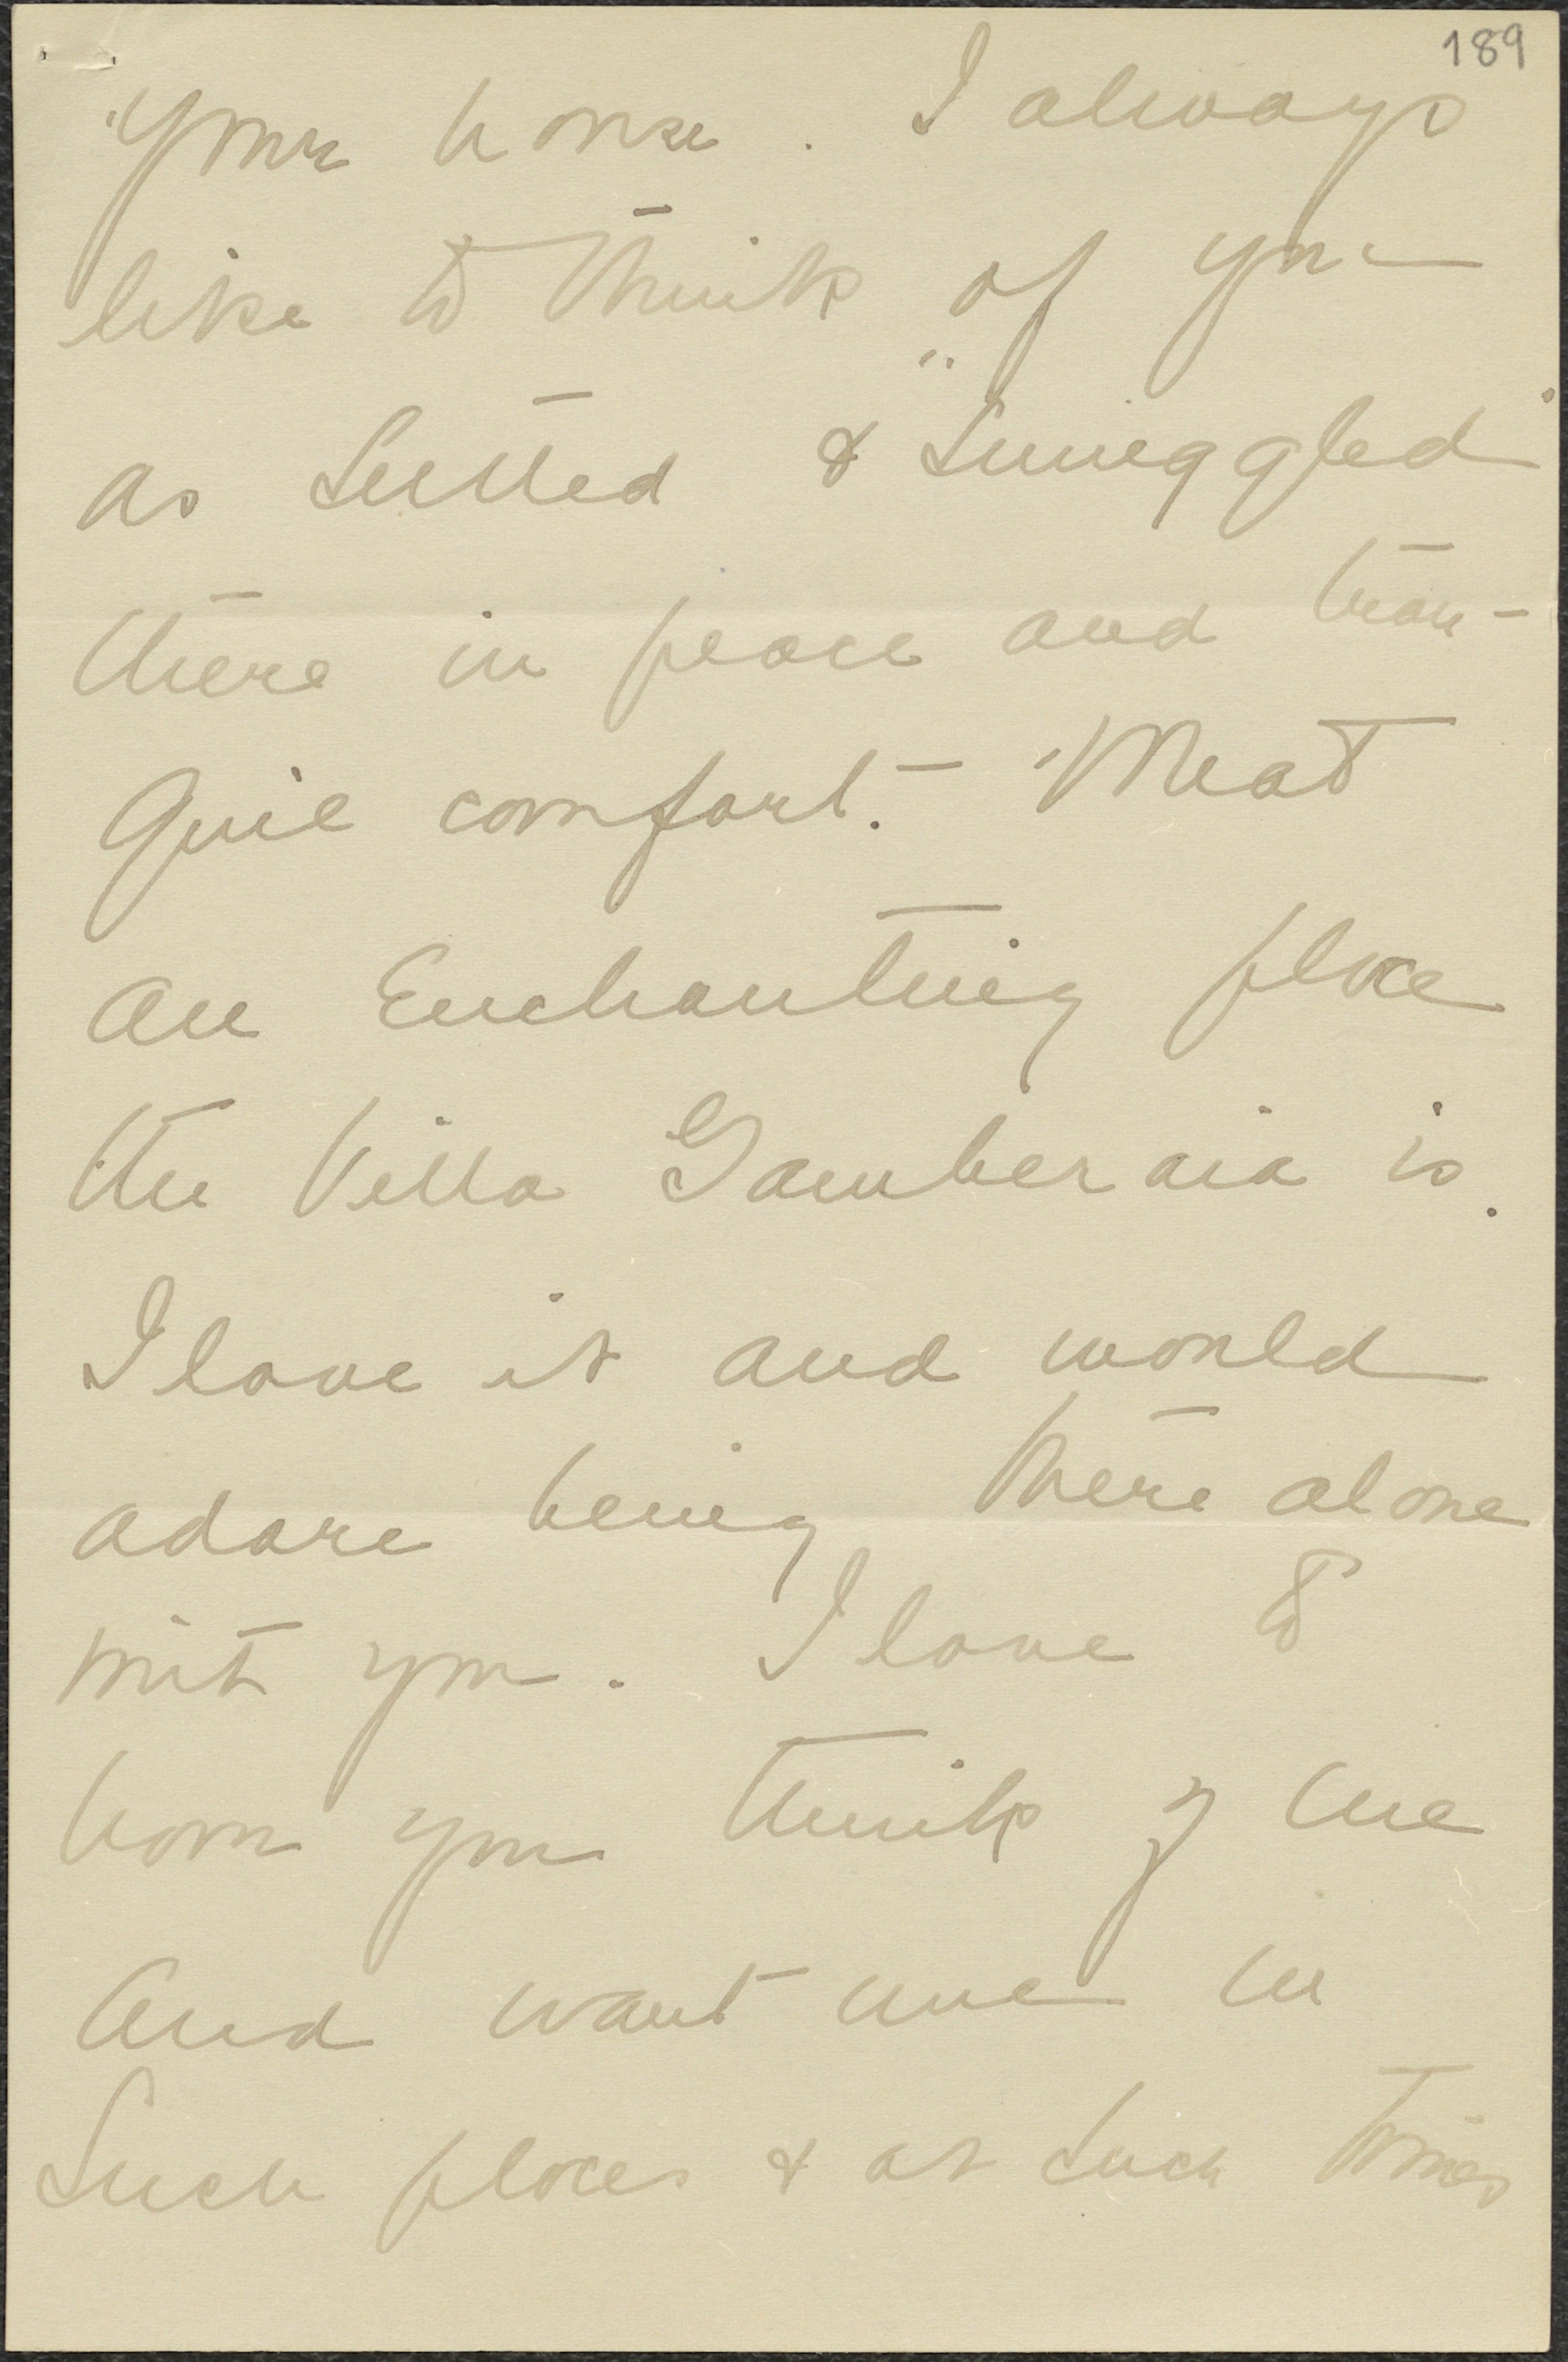 189
your house. I always
like to think of you
as settled & "snuggled"
there in peace and tran-
quil comfort. - What
an Enchanting place
the Villa Gamberaia is.
I love it and would
adore being there alone
with you. I love to
have you think of me
and want me in
such places & at such times